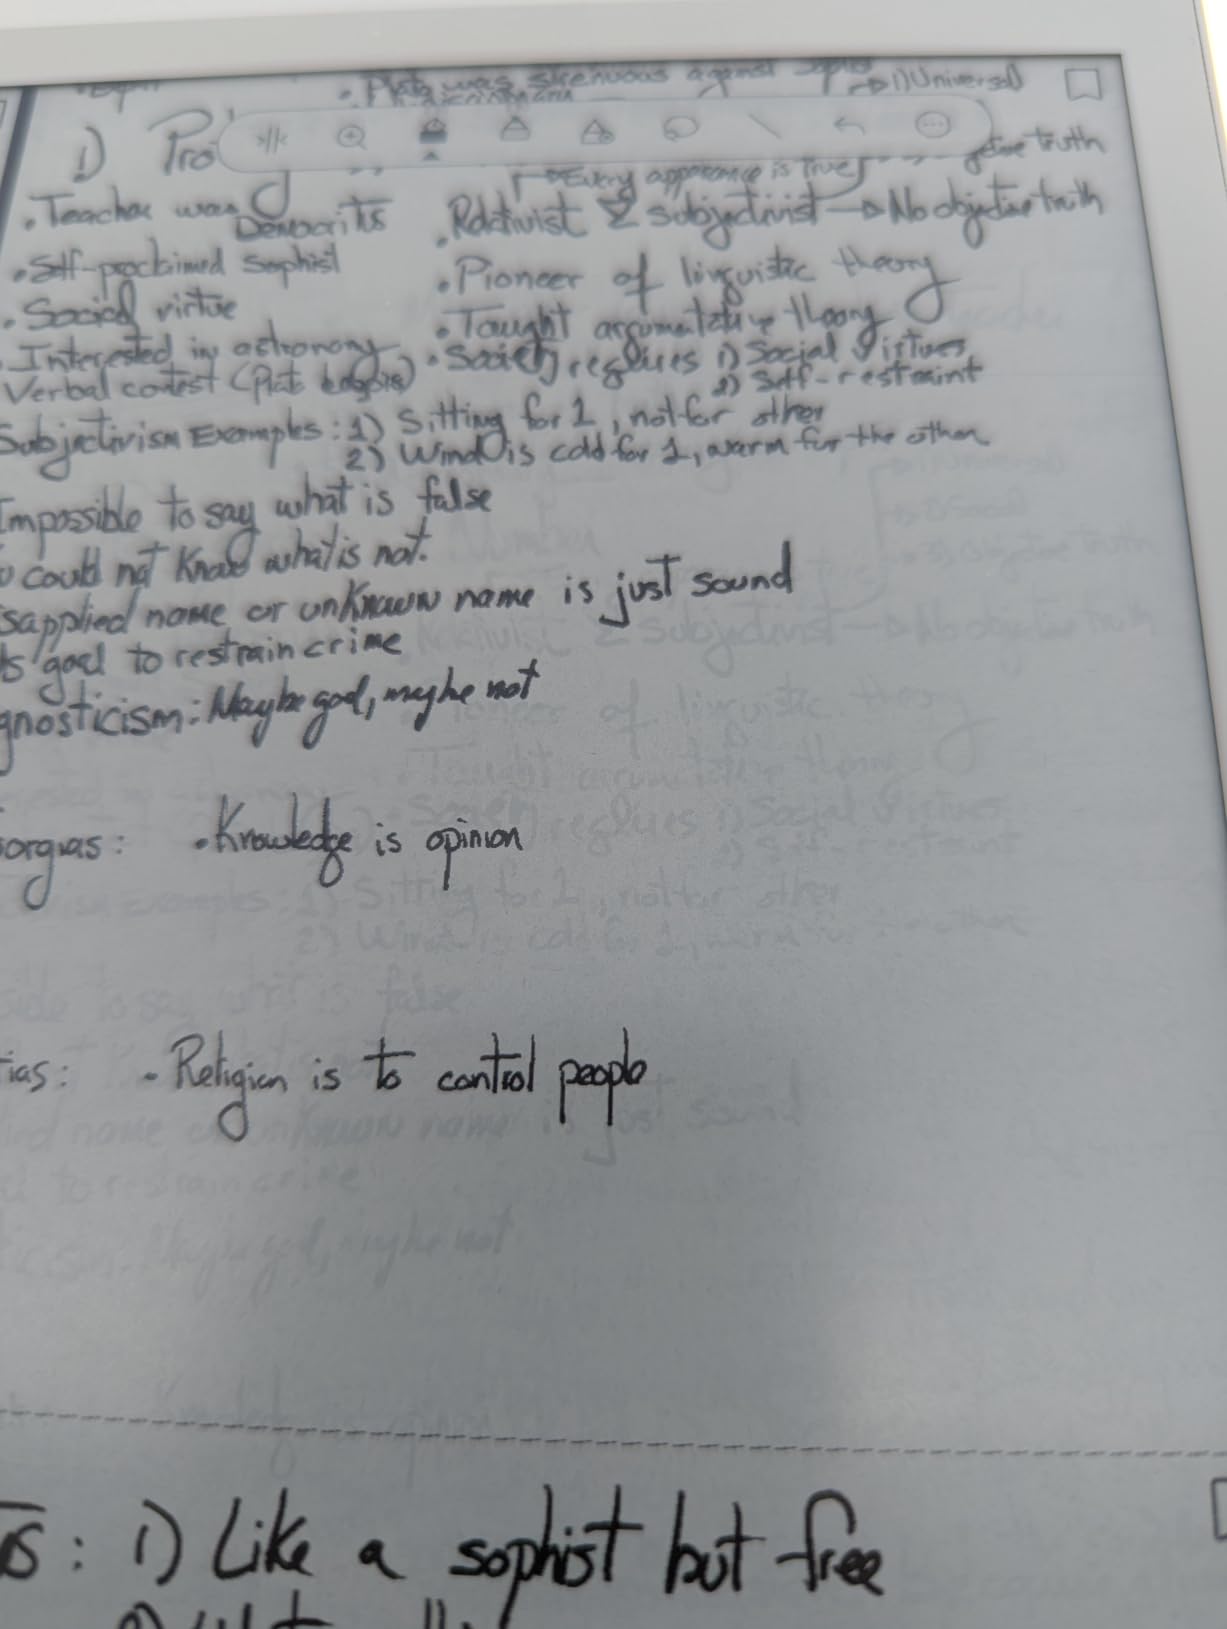 Plato was strenuous against → 1) Universal
1) Pro
Every appearance is true
truth
• Teacher was Democritus
• Relativist & subjectivist → No objective truth
• Self-proclaimed sophist
• Pioneer of linguistic theory
• Social virtue
• Taught argumentative theory
• Interested in astronomy
• Society requires 1) Social Virtues
Verbal contest (Plato
2) Self-restraint
Subjectivism Examples: 1) Sitting for 1, not for other
2) Wind is cold for 1, warm for the other
Impossible to say what is false
could not know what is not.
sapplied name or unknown name is just sound
goal to restrain crime
gnosticism: Maybe god, maybe not
orgias: • Knowledge is opinion
ias: • Religion is to control people
s: 1) Like a sophist but free